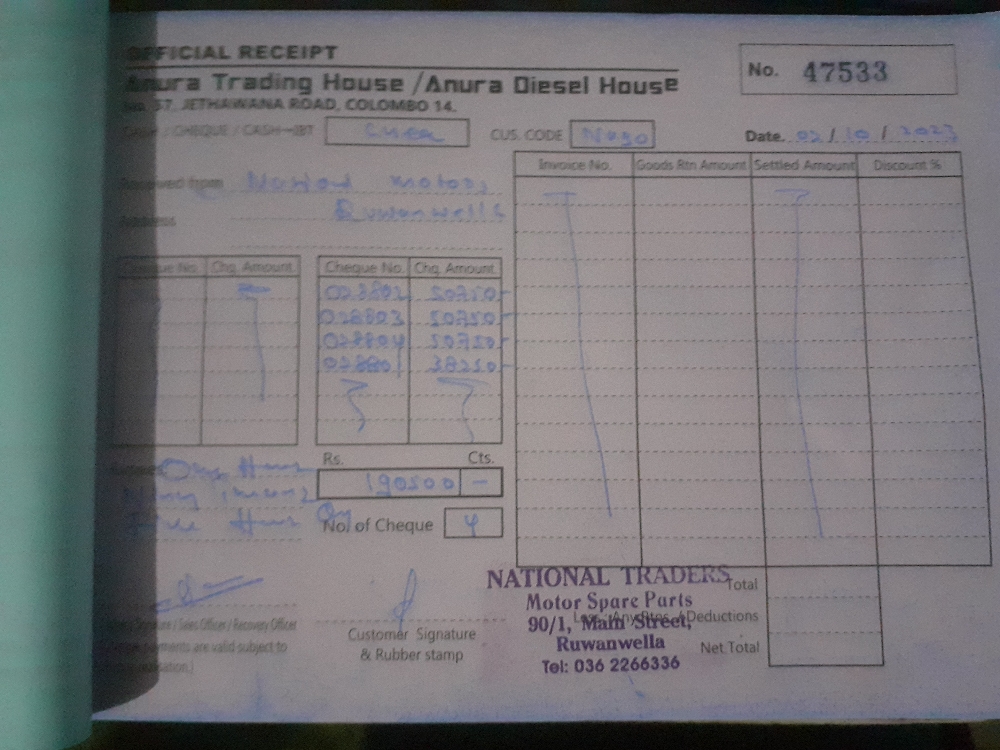 OFFICIAL RECEIPT
No. 47533
Anura Trading House /Anura Diesel House
No. 57, JETHAWANA ROAD, COLOMBO 14.
/ CHEQUE / CASH-IBT CUS. CODE Date. 02/10/2023
Received from motors,
Ruwanwella
Address
Invoice No. Goods Rtn Amount Settled Amount Discount %
Cheque No. Chq. Amount Cheque No. Chq. Amount
028802 50750-
028803 50750-
028804 50750-
028801 38250-
Rs. Cts.
190500 -
No. of Cheque 4
NATIONAL TRADERS
Motor Spare Parts
90/1, Main Street,
Ruwanwella
Tel: 036 2266336
Total
Deductions
Net Total
Signature / Sales Officer / Recovery Officer
payments are valid subject to
Customer Signature
& Rubber stamp